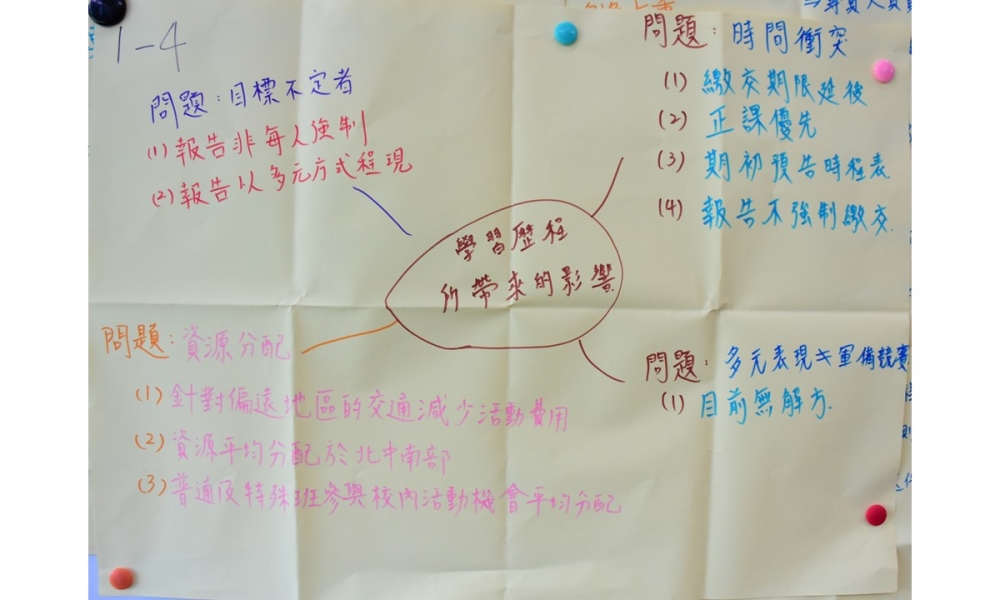 1-4
問題：目標不定者
(1) 報告非每人強制
(2) 報告以多元方式程現
問題：時間衝突
(1) 繳交期限延後
(2) 正課優先
(3) 期初預告時程表
(4) 報告不強制繳交.
學習歷程
所帶來的影響
問題：資源分配
(1) 針對偏遠地區的交通減少活動費用
(2) 資源平均分配於北中南部
(3) 普通及特殊班參與校內活動機會平均分配
問題：多元表現 軍備競賽
(1) 目前無解方.